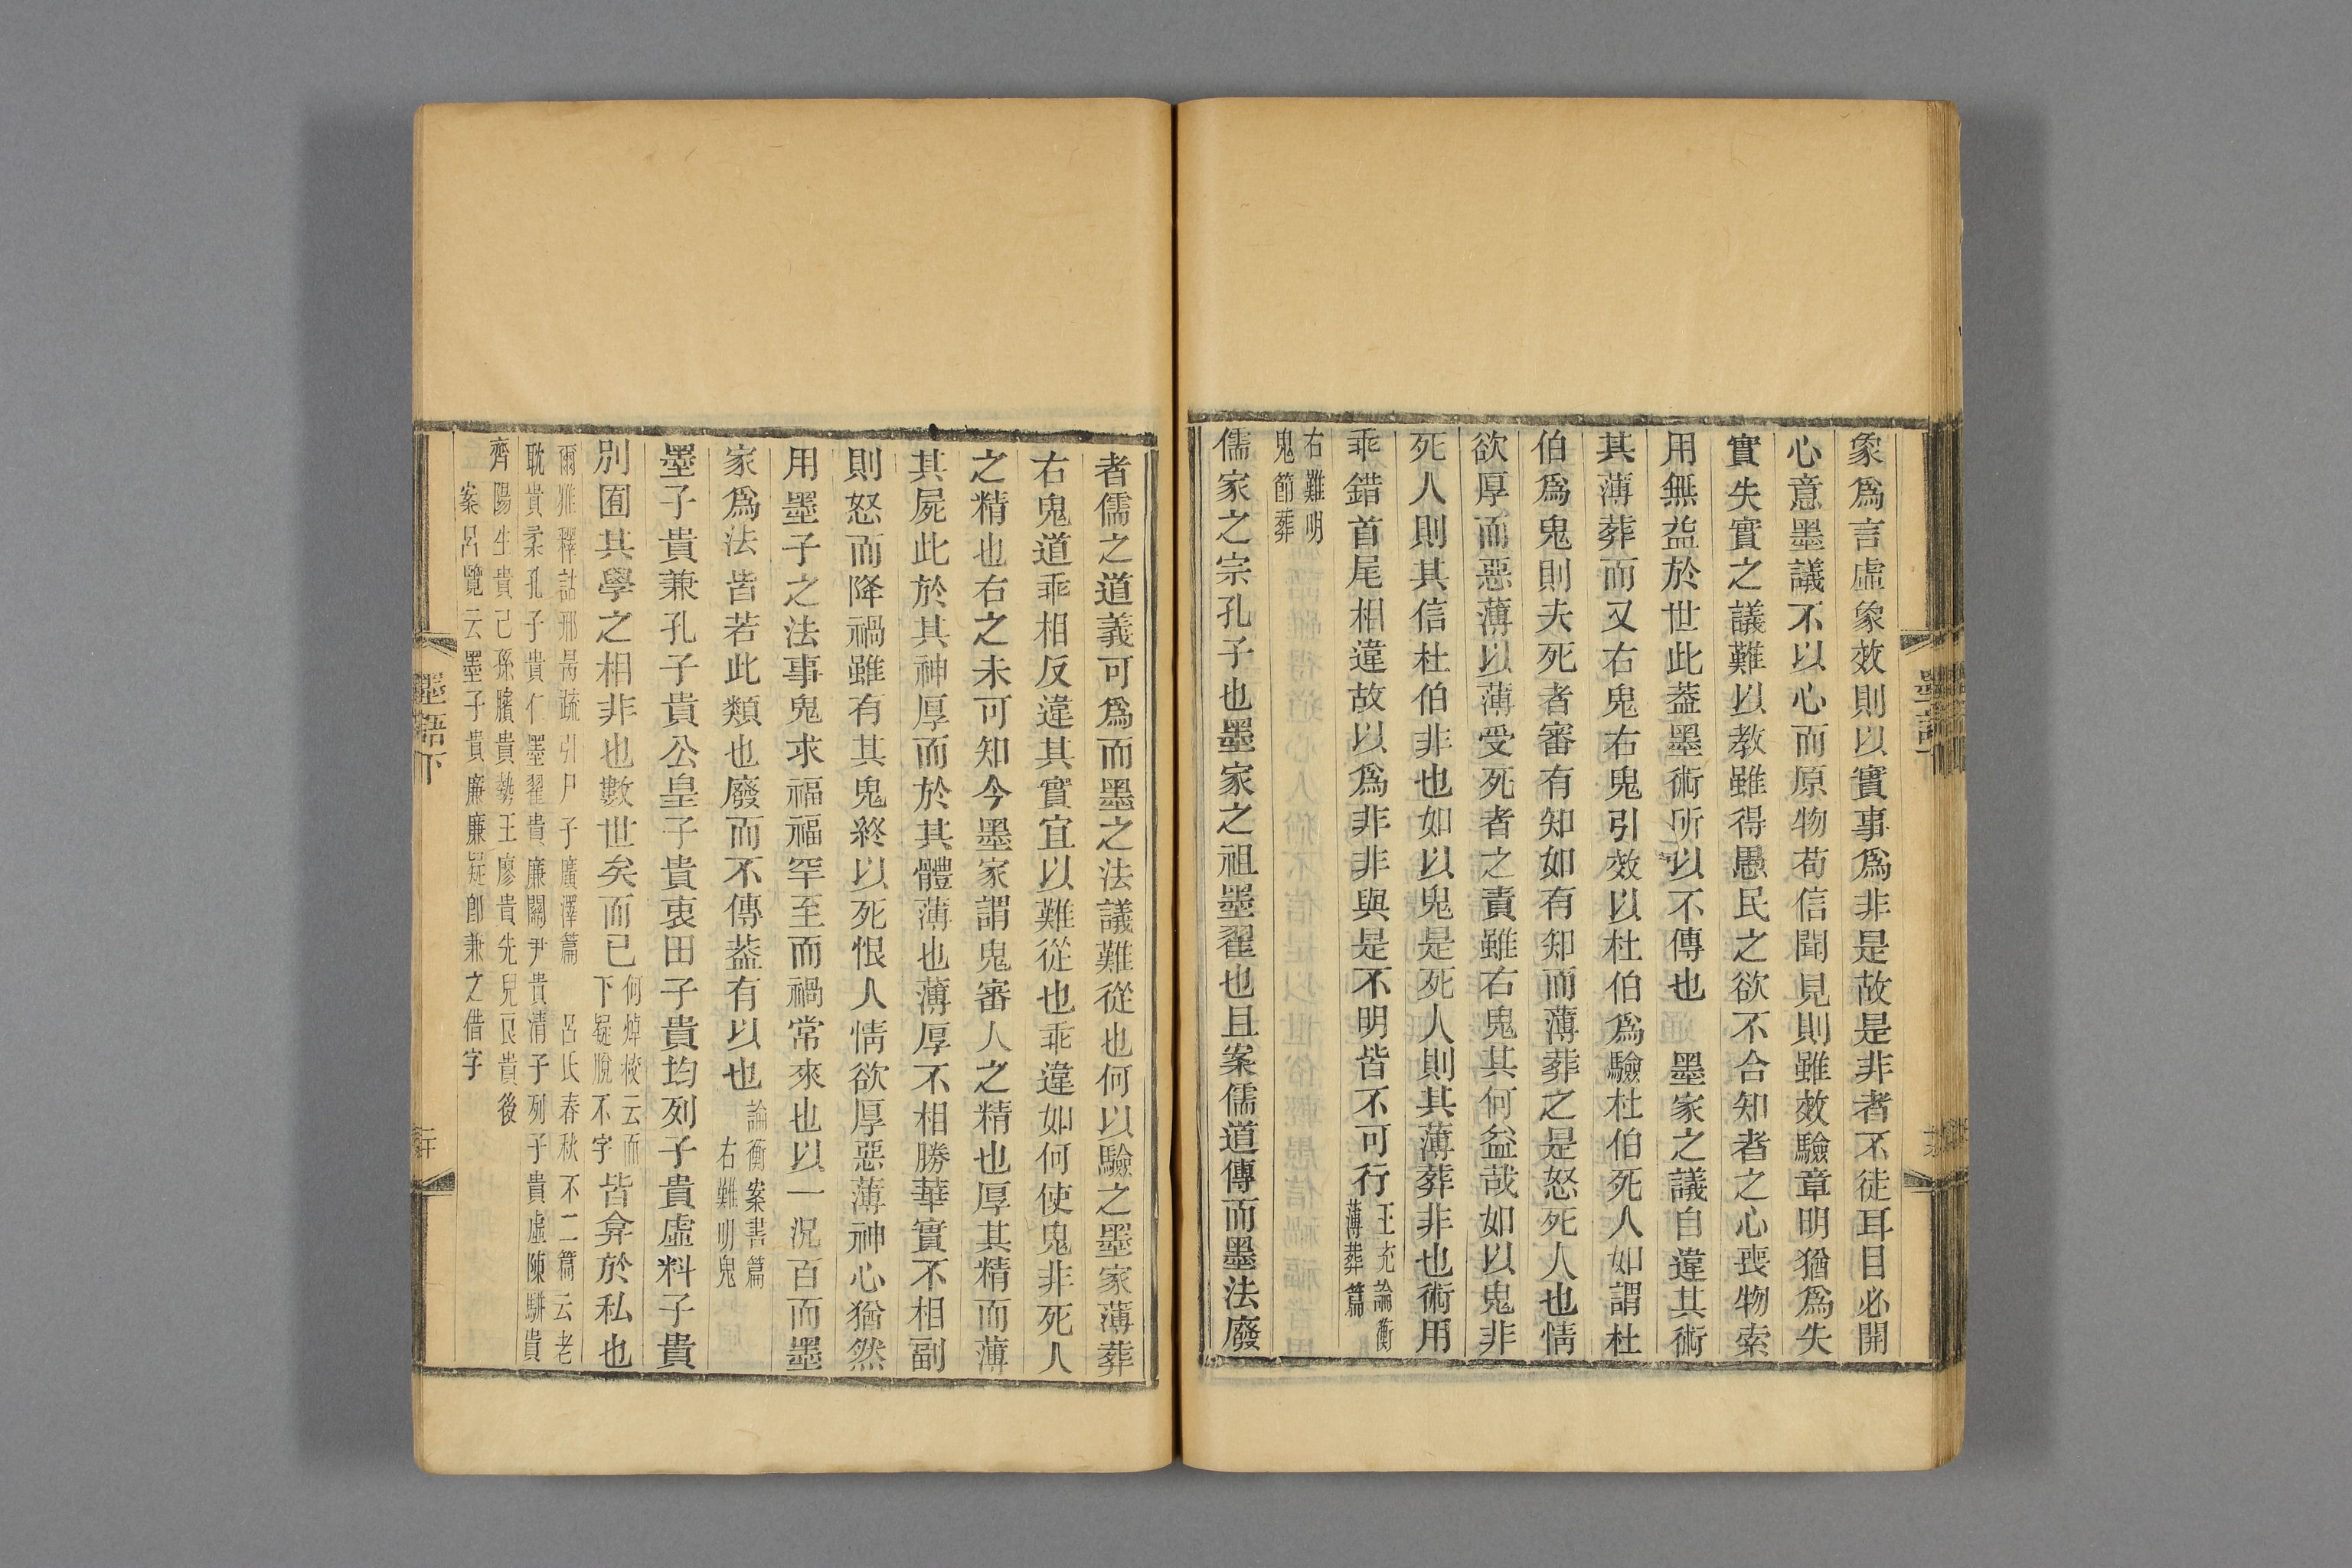 象爲言虛象效則以實事爲非是故是非者不徒耳目必開
心意墨議不以心而原物苟信聞見則雖效驗章明猶爲失
實失實之議難以教雖得愚民之欲不合知者之心喪物索
用無益於世此葢墨術所以不傳也　墨家之議自違其術
其薄葬而又右鬼右鬼引效以杜伯爲驗杜伯死人如謂杜
伯爲鬼則夫死者審有知如有知而薄葬之是怒死人也情
欲厚而惡薄以薄受死者之責雖右鬼其何益哉如以鬼非
死人則其信杜伯非也如以鬼是死人則其薄葬非也術用
乖錯首尾相違故以爲非非與是不明皆不可行王充論衡
薄葬篇
右難明
鬼節葬
儒家之宗孔子也墨家之祖墨翟也且案儒道傳而墨法廢
者儒之道義可爲而墨之法議難從也何以驗之墨家薄葬
右鬼道乖相反違其實宜以難從也乖違如何使鬼非死人
之精也右之未可知今墨家謂鬼審人之精也厚其精而薄
其屍此於其神厚而於其體薄也薄厚不相勝華實不相副
則怒而降禍雖有其鬼終以死恨人情欲厚惡薄神心猶然
用墨子之法事鬼求福福罕至而禍常來也以一況百而墨
家爲法皆若此類也廢而不傳葢有以也論衡案書篇
右難明鬼
墨子貴兼孔子貴公皇子貴衷田子貴均列子貴虛料子貴
別囿其學之相非也數世矣而已何焯校云而
下疑脫不字皆弇於私也
爾雅釋詁邢昺疏引尸子廣澤篇　呂氏春秋不二篇云老
耽貴柔孔子貴仁墨翟貴廉關尹貴清子列子貴虛陳駢貴
齊陽生貴己孫臏貴勢王廖貴先兒良貴後
案呂覽云墨子貴廉廉疑卽兼之借字
墨語下